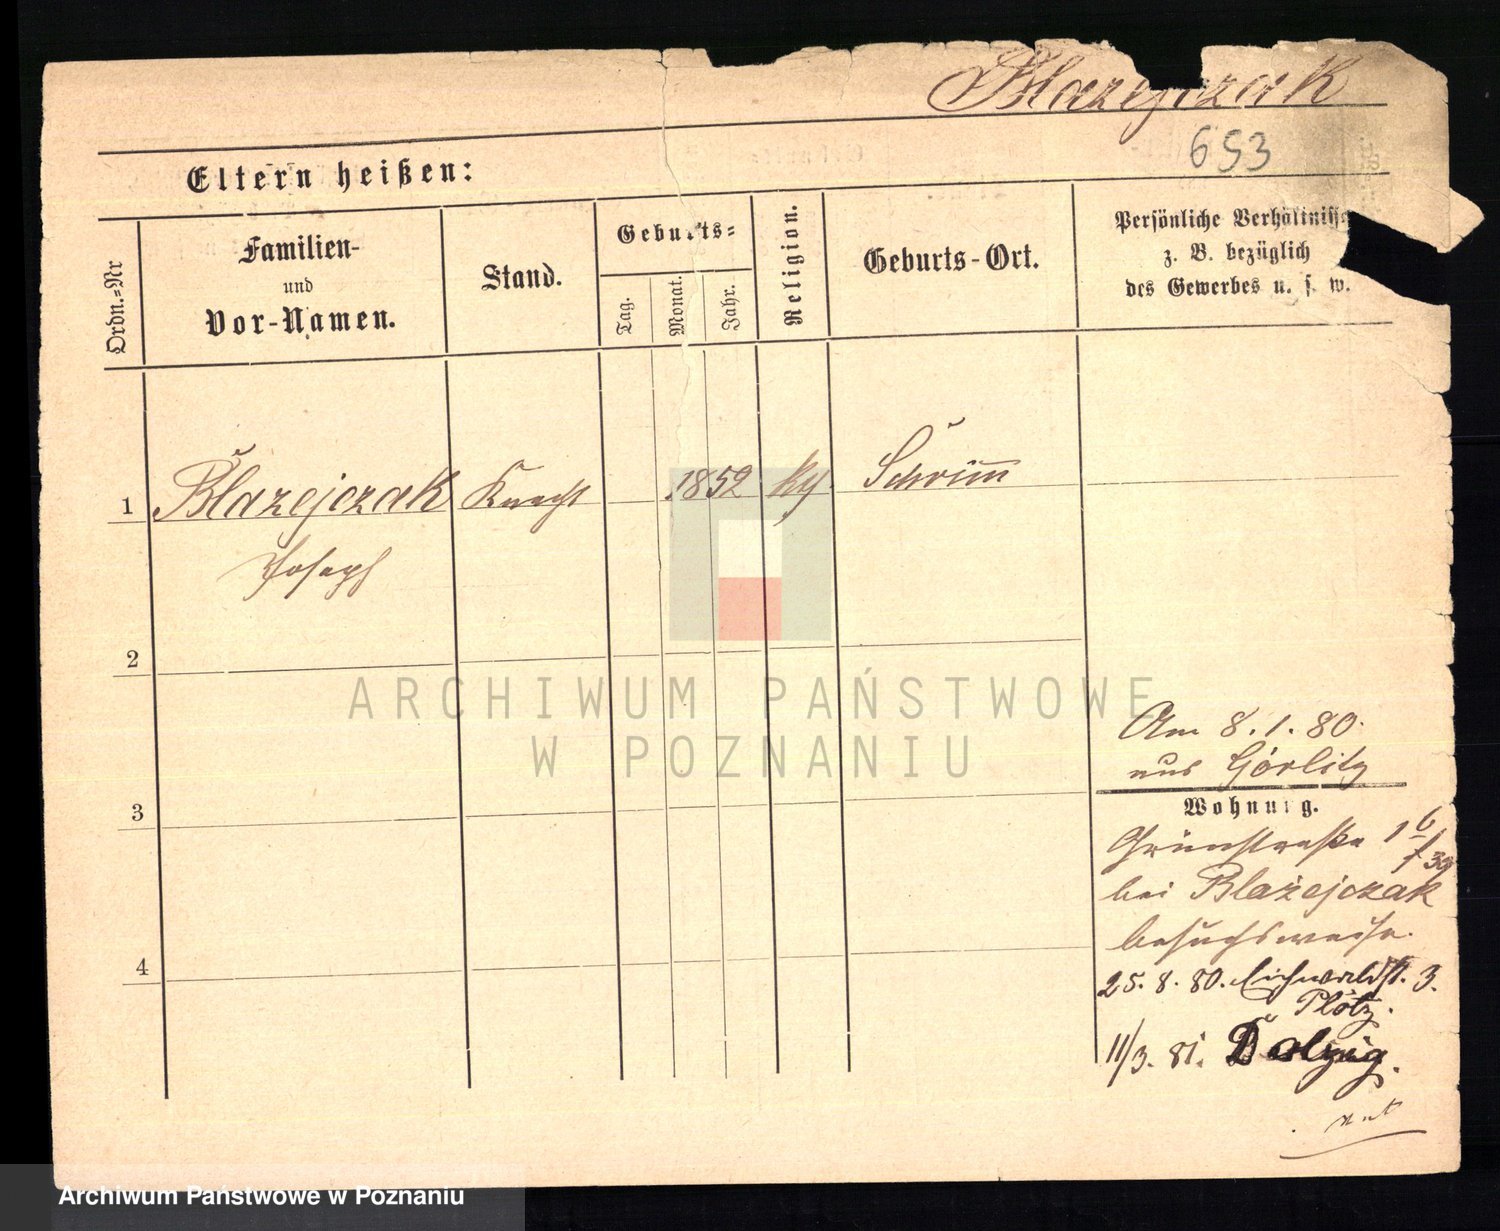 Blazejczak
653
Eltern heißen:
Ordn.=Nr
Familien-
und
Vor-Namen.
Stand.
Geburts=
Tag.
Monat.
Jahr.
Religion.
Geburts-Ort.
Persönliche Verhältnisse
z. B. bezüglich
des Gewerbes u. s. w.
1 Blazejczak Knecht 1852 Schrimm
Joseph
2
ARCHIWUM PAŃSTWOWE
W POZNANIU
Am 8.1.80.
aus Görlitz
Wohnung.
3
Grünstraße 1
bei Blażejczak
besuchsweise.
4
25.8.80. Eichwaldst. 3.
Plötz.
11/3.81. Dolzig.
Archiwum Państwowe w Poznaniu